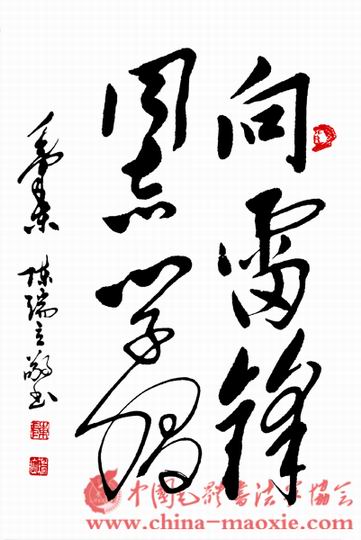 向雷鋒
同志学習
毛泽东 陈瑞立敬书
中国毛體書法家協会
www.china-maoxie.com